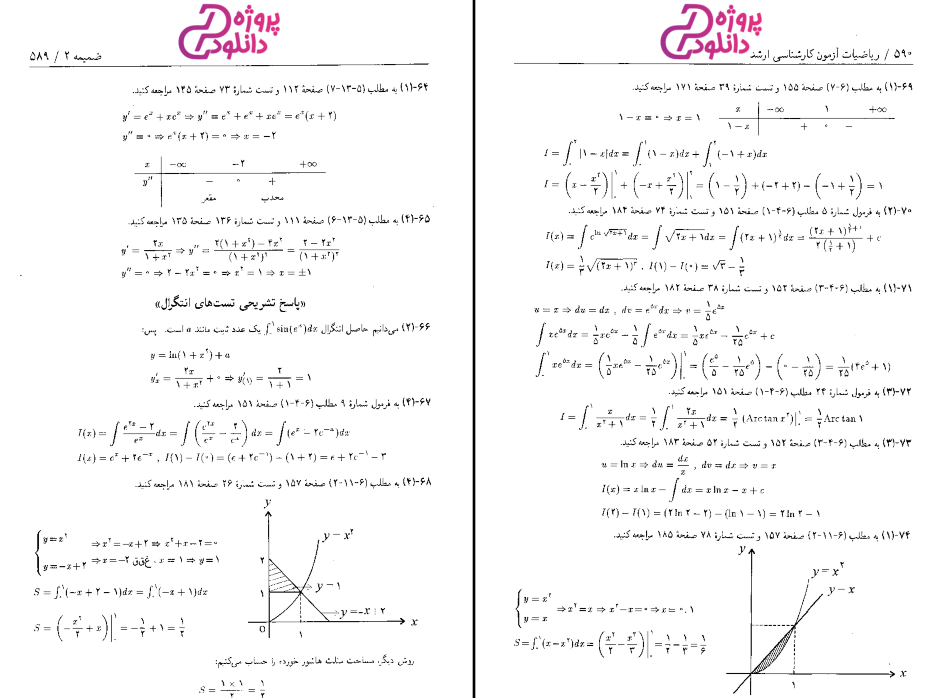 پروژه
دانلود
ضمیمه ۲ / ۵۸۹
۶۴-(۱) به مطلب (۵-۱۳-۷) صفحهٔ ۱۱۲ و تست شمارهٔ ۷۳ صفحهٔ ۱۴۵ مراجعه کنید.
y′ = eˣ + xeˣ ⇒ y″ = eˣ + eˣ + xeˣ = eˣ(x + ۲)
y″ = ۰ ⇒ eˣ(x + ۲) = ۰ ⇒ x = −۲
x −∞ −۲ +∞
y″ − ۰ +
مقعر محدب
۶۵-(۴) به مطلب (۵-۱۳-۶) صفحهٔ ۱۱۱ و تست شمارهٔ ۱۳۶ صفحهٔ ۱۳۵ مراجعه کنید.
y′ = ۲x/(۱ + x²) ⇒ y″ = (۲(۱ + x²) − ۴x²)/(۱ + x²)² = (۲ − ۲x²)/(۱ + x²)²
y″ = ۰ ⇒ ۲ − ۲x² = ۰ ⇒ x² = ۱ ⇒ x = ±۱
«پاسخ تشریحی تست‌های انتگرال»
۶۶-(۲) می‌دانیم حاصل انتگرال ∫₀¹ sin(eˣ)dx یک عدد ثابت مانند a است. پس:
y = ln(۱ + x²) + a
y′ₓ = ۲x/(۱ + x²) + ۰ ⇒ y′(۱) = ۲/(۱ + ۱) = ۱
۶۷-(۴) به فرمول شمارهٔ ۹ مطلب (۶-۴-۱) صفحهٔ ۱۵۱ مراجعه کنید.
I(x) = ∫ (e²ˣ − ۲)/eˣ dx = ∫ (e²ˣ/eˣ − ۲/eˣ) dx = ∫(eˣ − ۲e⁻ˣ)dx
I(x) = eˣ + ۲e⁻ˣ , I(۱) − I(۰) = (e + ۲e⁻¹) − (۱ + ۲) = e + ۲e⁻¹ − ۳
۶۸-(۴) به مطلب (۶-۱۱-۲) صفحهٔ ۱۵۷ و تست شمارهٔ ۲۶ صفحهٔ ۱۸۱ مراجعه کنید.
y = x² ⇒ x² = −x + ۲ ⇒ x² + x − ۲ = ۰
y = −x + ۲ ⇒ x = −۲ غ‌ق‌ق . x = ۱ ⇒ y = ۱
S = ∫₀¹(−x + ۲ − ۱)dx = ∫₀¹(−x + ۱)dx
S = (−x²/۲ + x)|₀¹ = −۱/۲ + ۱ = ۱/۲
y
y = x²
۲
۱
y = ۱
y = −x + ۲
o ۱ x
روش دیگر، مساحت مثلث هاشور خورده را حساب می‌کنیم:
S = (۱ × ۱)/۲ = ۱/۲
پروژه
دانلود
۵۹۰ / ریاضیات آزمون کارشناسی ارشد
۶۹-(۱) به مطلب (۶-۷) صفحهٔ ۱۵۵ و تست شمارهٔ ۳۹ صفحهٔ ۱۷۱ مراجعه کنید.
۱ − x = ۰ ⇒ x = ۱
x −∞ ۱ +∞
۱ − x + ۰ −
I = ∫₀² |۱ − x|dx = ∫₀¹ (۱ − x)dx + ∫₁² (−۱ + x)dx
I = (x − x²/۲)|₀¹ + (−x + x²/۲)|₁² = (۱ − ۱/۲) + (−۲ + ۲) − (−۱ + ۱/۲) = ۱
۷۰-(۲) به فرمول شمارهٔ ۵ مطلب (۶-۴-۱) صفحهٔ ۱۵۱ و تست شمارهٔ ۷۴ صفحهٔ ۱۸۴ مراجعه کنید.
I(x) = ∫ e^(ln √(۲x+۱))dx = ∫ √(۲x + ۱)dx = ∫(۲x + ۱)^(۱/۲)dx = (۲x + ۱)^(۱/۲+۱)/(۲(۱/۲ + ۱)) + c
I(x) = ۱/۳ √(۲x + ۱)³ , I(۱) − I(۰) = √۳ − ۱/۳
۷۱-(۱) به مطلب (۶-۴-۳) صفحهٔ ۱۵۲ و تست شمارهٔ ۳۸ صفحهٔ ۱۸۲ مراجعه کنید.
u = x ⇒ du = dx , dv = e⁵ˣdx ⇒ v = ۱/۵ e⁵ˣ
∫ xe⁵ˣdx = ۱/۵ xe⁵ˣ − ۱/۵ ∫ e⁵ˣdx = ۱/۵ xe⁵ˣ − ۱/۲۵ e⁵ˣ + c
∫₀¹ xe⁵ˣdx = (۱/۵ xe⁵ˣ − ۱/۲۵ e⁵ˣ)|₀¹ = (e⁵/۵ − ۱/۲۵ e⁵) − (۰ − ۱/۲۵) = ۱/۲۵ (۴e⁵ + ۱)
۷۲-(۳) به فرمول شمارهٔ ۲۴ مطلب (۶-۴-۱) صفحهٔ ۱۵۱ مراجعه کنید.
I = ∫₀¹ x/(x⁴ + ۱) dx = ۱/۲ ∫₀¹ ۲x/(x⁴ + ۱) dx = ۱/۲ (Arc tan x²)|₀¹ = ۱/۲ Arc tan ۱
۷۳-(۳) به مطلب (۶-۴-۳) صفحهٔ ۱۵۲ و تست شمارهٔ ۵۲ صفحهٔ ۱۸۳ مراجعه کنید.
u = ln x ⇒ du = dx/x , dv = dx ⇒ v = x
I(x) = x ln x − ∫ dx = x ln x − x + c
I(۲) − I(۱) = (۲ ln ۲ − ۲) − (ln ۱ − ۱) = ۲ ln ۲ − ۱
۷۴-(۱) به مطلب (۶-۱۱-۲) صفحهٔ ۱۵۷ و تست شمارهٔ ۷۸ صفحهٔ ۱۸۵ مراجعه کنید.
y = x²
y = x ⇒ x² = x ⇒ x² − x = ۰ ⇒ x = ۰ , ۱
S = ∫₀¹(x − x²)dx = (x²/۲ − x³/۳)|₀¹ = ۱/۲ − ۱/۳ = ۱/۶
y
y = x²
y = x
۱ x